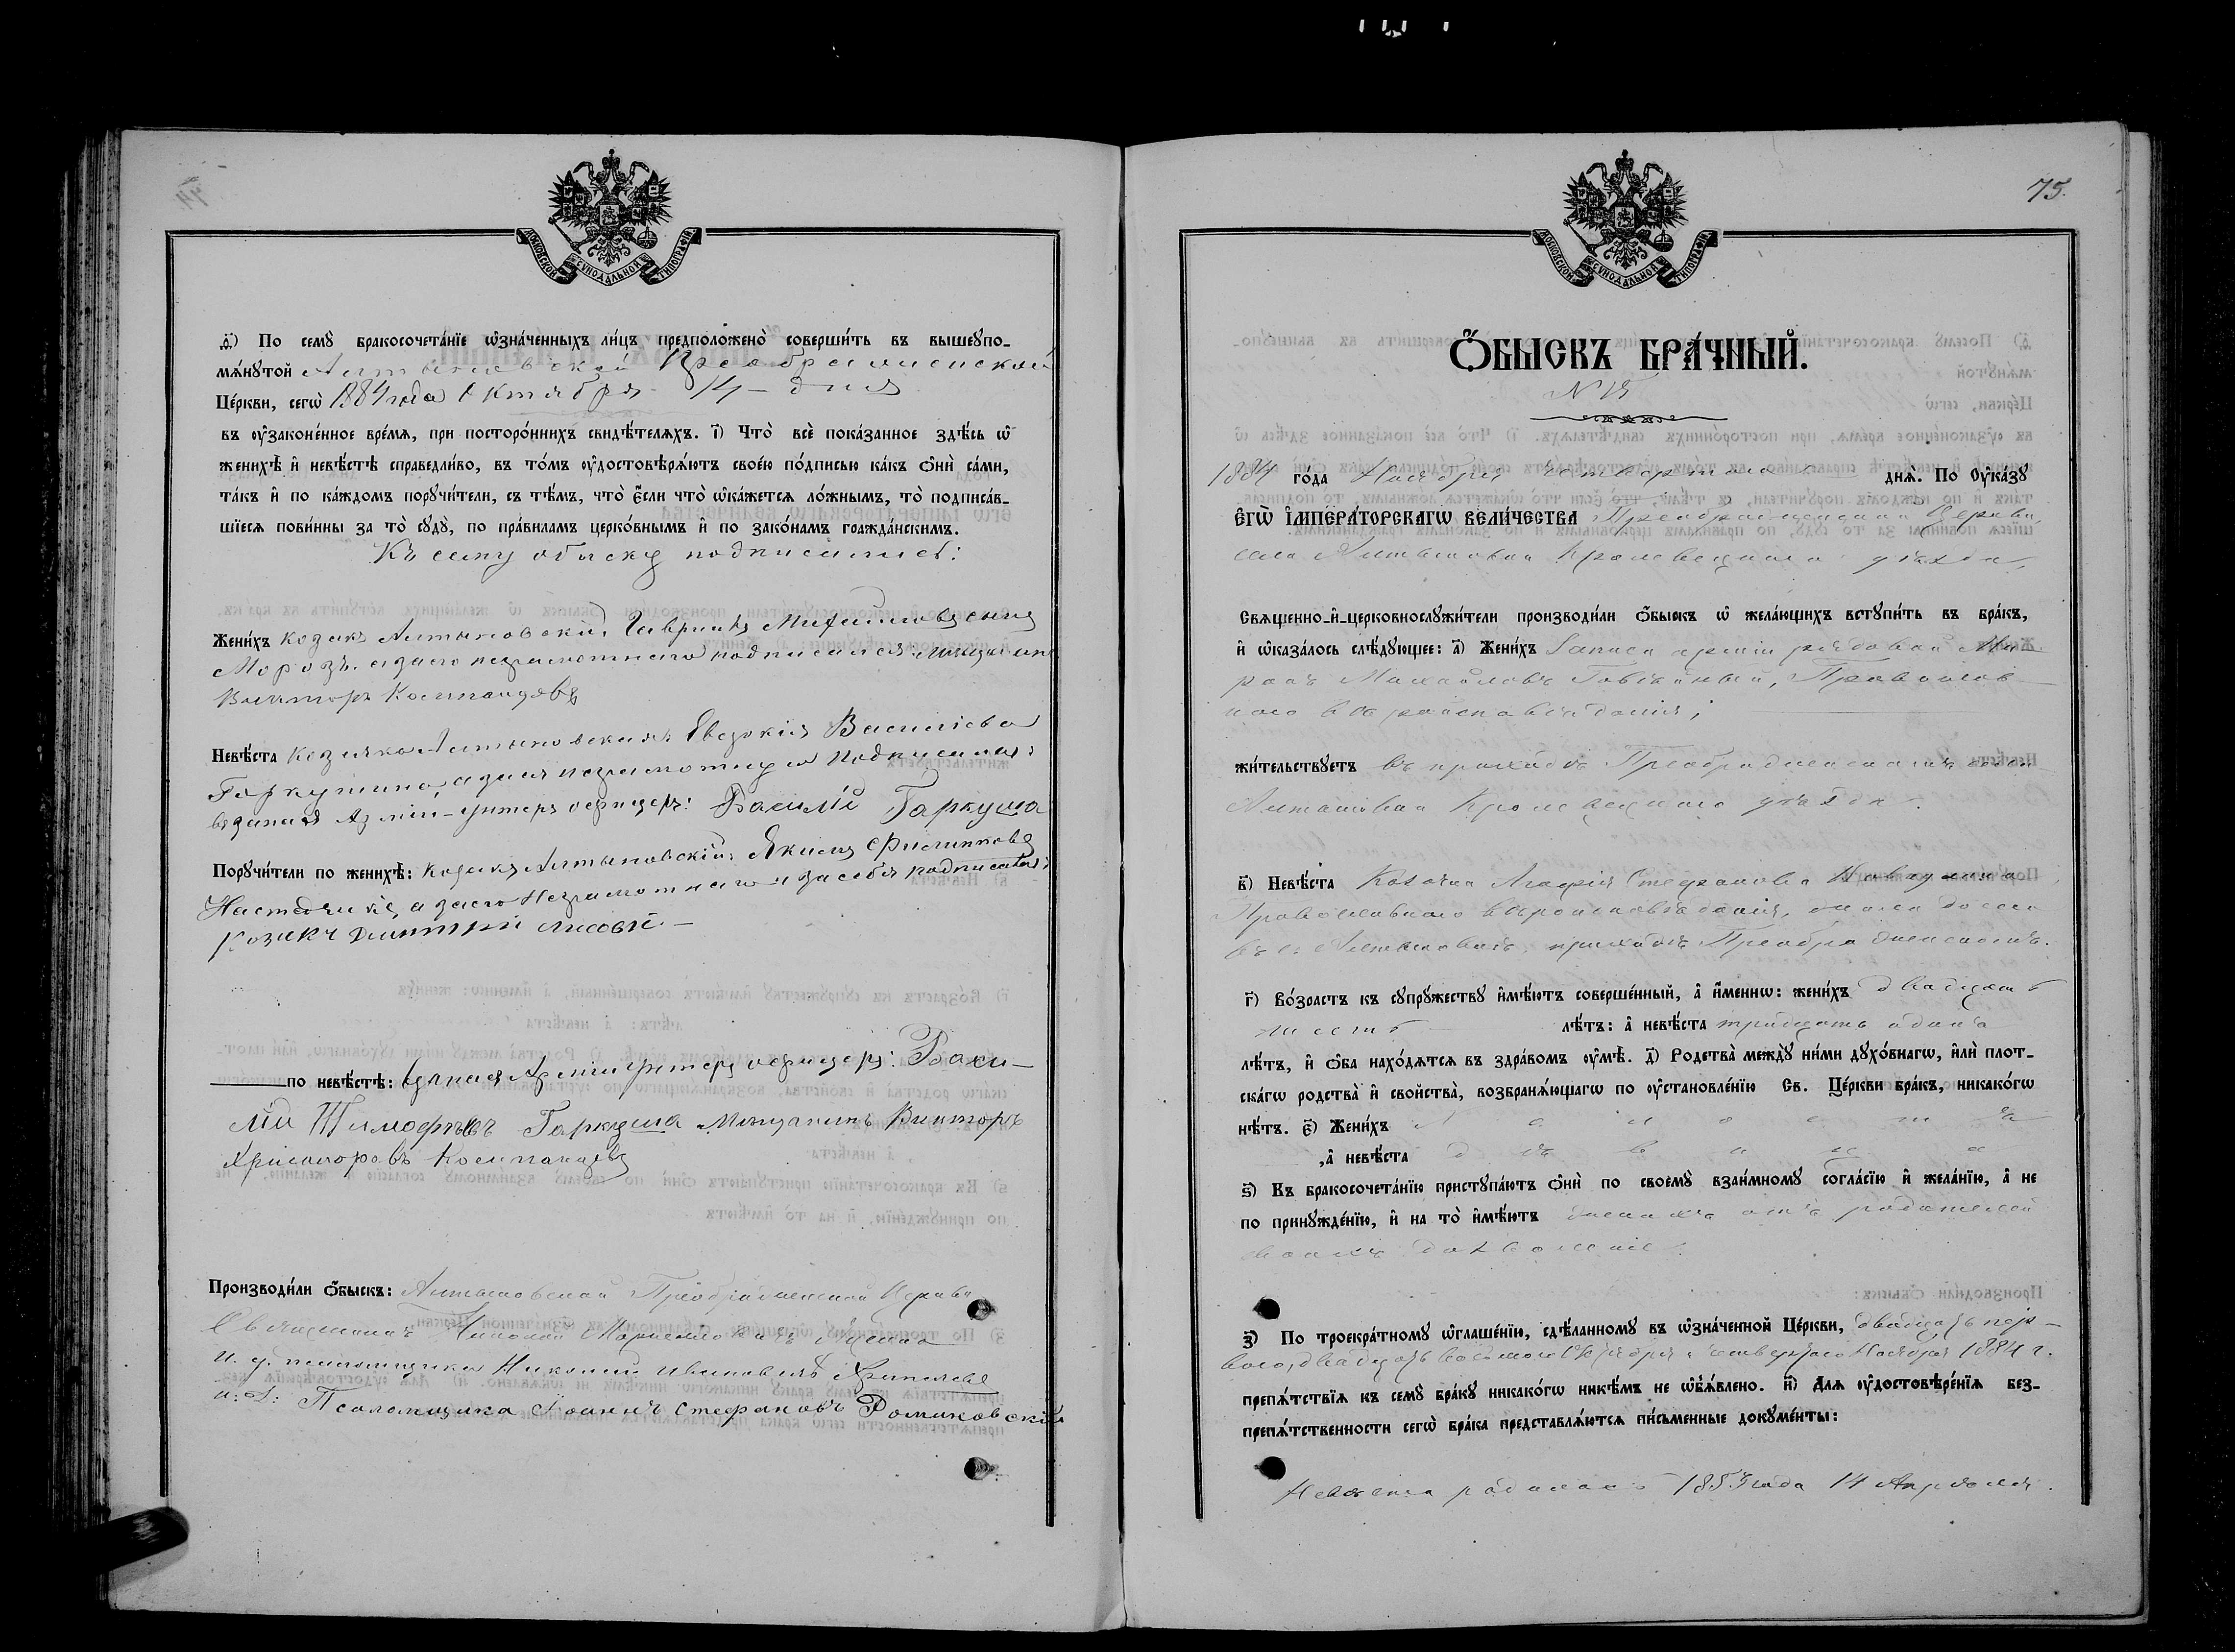 МОСКОВСКОЙ СѴНОДАЛЬНОЙ ТИПОГРАФІИ
ѳ҃) По семꙋ̀ бракосочета́нїе ѡ҆зна́ченныхъ ли́цъ предположено̀ соверши́ть въ вышеꙋпо-
мѧ́нꙋтой Алтыновской Преображенской
Це́ркви, сегѡ̀ 1884 года Октября 14 дня
въ ᲂу҆законе́нное вре́мѧ, при посторо́ннихъ свидѣ́телѧхъ. і҃) Что̀ всѐ пока́занное здѣ́сь ѡ҆
женихѣ̀ и҆ невѣ́стѣ справедли́во, въ то́мъ ᲂу҆достовѣрѧ́ютъ свое́ю по́дписью ка́къ ѻ҆нѝ са́ми,
та́къ и҆ по ка́ждомъ порꙋчи́тели, съ тѣ́мъ, что̀ є҆́сли что̀ ѡ҆ка́жетсѧ ло́жнымъ, то̀ подписа́в-
шїесѧ пови́нны за то̀ сꙋдꙋ̀, по пра́виламъ церко́внымъ и҆ по зако́намъ гражда́нскимъ.
Къ сему обыску подписались:
Жени́хъ козакъ Алтыновскій Гавріилъ Михайловъ сынъ
Морозъ, а за его неграмотнаго подписался мещанинъ
Викторъ Компанцовъ
Невѣ́ста козачка Алтыновская Евдокія Василіева
Гаркушина, а за ея неграмотную подписался:
запаса Арміи унтеръ офицеръ: Василій Гаркуша
Порꙋчи́тели по женихѣ̀: козакъ Алтыновскій Якимъ Филиповъ
а за его неграмотнаго и за себя подписался
Козакъ Дмитрій Лисовый.
по невѣ́стѣ: запаса Арміи унтеръ офицеръ: Васи-
лій Тимофѣевъ Гаркуша Мещанинъ Викторъ
Христофоровъ Компанцевъ
Производи́ли ѻ҆́быскъ: Алтыновской Преображенской Церкви
Священникъ Николай
и. д. псаломщика Николай Ивановичъ
и. д. Псаломщика Іоаннъ Стефановъ Ромиковскій
75.
МОСКОВСКОЙ СѴНОДАЛЬНОЙ ТИПОГРАФІИ
Ѻ҆́БЫСКЪ БРА́ЧНЫЙ.
N 15
1884 го́да Ноября четвертаго днѧ̀. По Оу҆ка́зꙋ
Є҆ГѠ̀ І҆МПЕРА́ТОРСКАГѠ ВЕЛИ́ЧЕСТВА Преображенской Церкви,
села Алтыновки Кролевецкаго уѣзда,
Свѧще́нно-и҆-церковнослꙋжи́тели производи́ли ѻ҆́быскъ ѡ҆ жела́ющихъ встꙋпи́ть въ бра́къ,
и҆ ѡ҆каза́лось слѣ́дꙋющее: а҃) Жени́хъ Запаса арміи рядовой
Михайловъ Православ-
наго вѣроисповѣданія;
жи́тельствꙋетъ въ приходѣ Преображенскомъ села
Алтыновки Кролевецкаго уѣзда.
в҃) Невѣ́ста Козачка Агафія Стефанова
Православнаго вѣроисповѣданія, жила до селе
въ с. Алтыновкѣ, приходѣ Преображенскомъ.
г҃) Во́зрастъ къ сꙋпрꙋ́жествꙋ и҆мѣ́ютъ соверше́нный, а҆ и҆́меннѡ: жени́хъ двадцать
шесть лѣ́тъ: а҆ невѣ́ста тридцать одинъ
лѣ́тъ, и҆ ѻ҆́ба нахо́дѧтсѧ въ здра́вомъ ᲂу҆мѣ̀. д҃) Родства̀ междꙋ̀ ни́ми дꙋхо́внагѡ, и҆лѝ плот-
ска́гѡ родства̀ и҆ свойства̀, возбранѧ́ющагѡ по ᲂу҆становле́нїю Св. Це́ркви бра́къ, никако́гѡ
нѣ́тъ. є҃) Жени́хъ холостъ
, а҆ невѣ́ста дѣвица
ѕ҃) Къ бракосочета́нїю пристꙋпа́ютъ ѻ҆нѝ по своемꙋ̀ взаи́мномꙋ согла́сїю и҆ жела́нїю, а҆ не
по принꙋжде́нїю, и҆ на то̀ и҆мѣ́ютъ отъ родителей
своихъ дозволеніе.
з҃) По троекра́тномꙋ ѡ҆глаше́нїю, сдѣ́ланномꙋ въ ѡ҆зна́ченной Це́ркви, двадцать пер-
ваго, двадцать восьмаго Октября и четвертаго Ноября 1884 г.
препѧ́тствїѧ къ семꙋ̀ бра́кꙋ никако́гѡ никѣ́мъ не ѡ҆б̾ѧ́влено. и҃) Длѧ ᲂу҆достовѣре́нїѧ без-
препѧ́тственности сегѡ̀ бра́ка представлѧ́ютсѧ пи́сьменные докꙋме́нты:
Невѣста родилась 1853 года 14 Апрѣля.